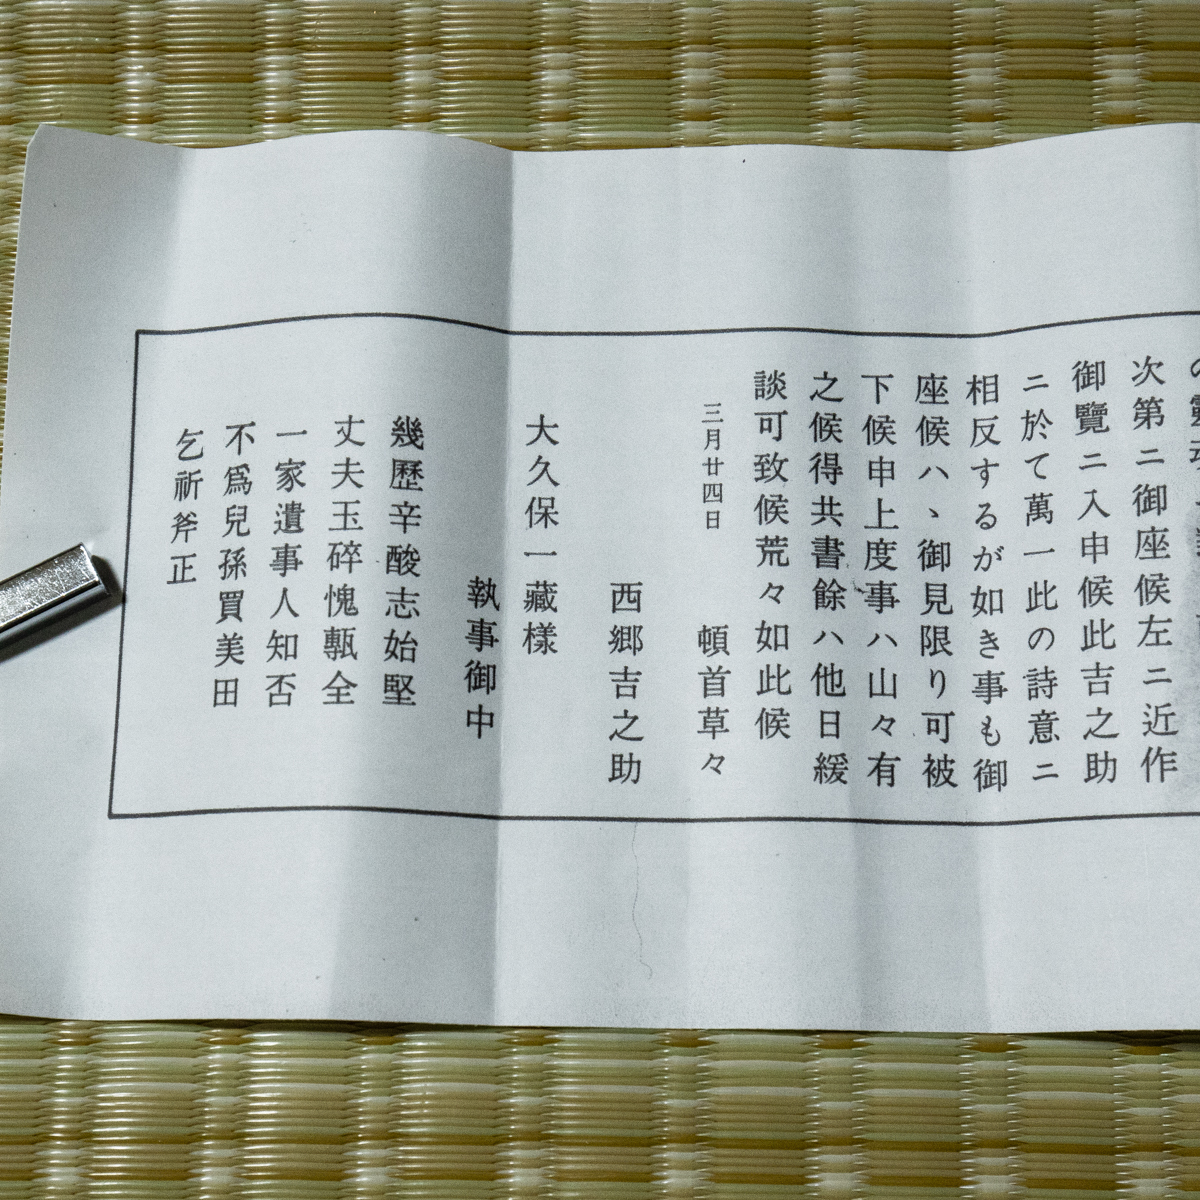 次第ニ御座候左ニ近作
御覽ニ入申候此吉之助
ニ於て萬一此の詩意ニ
相反するが如き事も御
座候ハヽ御見限り可被
下候申上度事ハ山々有
之候得共書餘ハ他日緩
談可致候荒々如此候
頓首草々
三月廿四日
西郷吉之助
大久保一藏樣
執事御中
幾歷辛酸志始堅
丈夫玉碎愧甎全
一家遺事人知否
不爲兒孫買美田
乞祈斧正